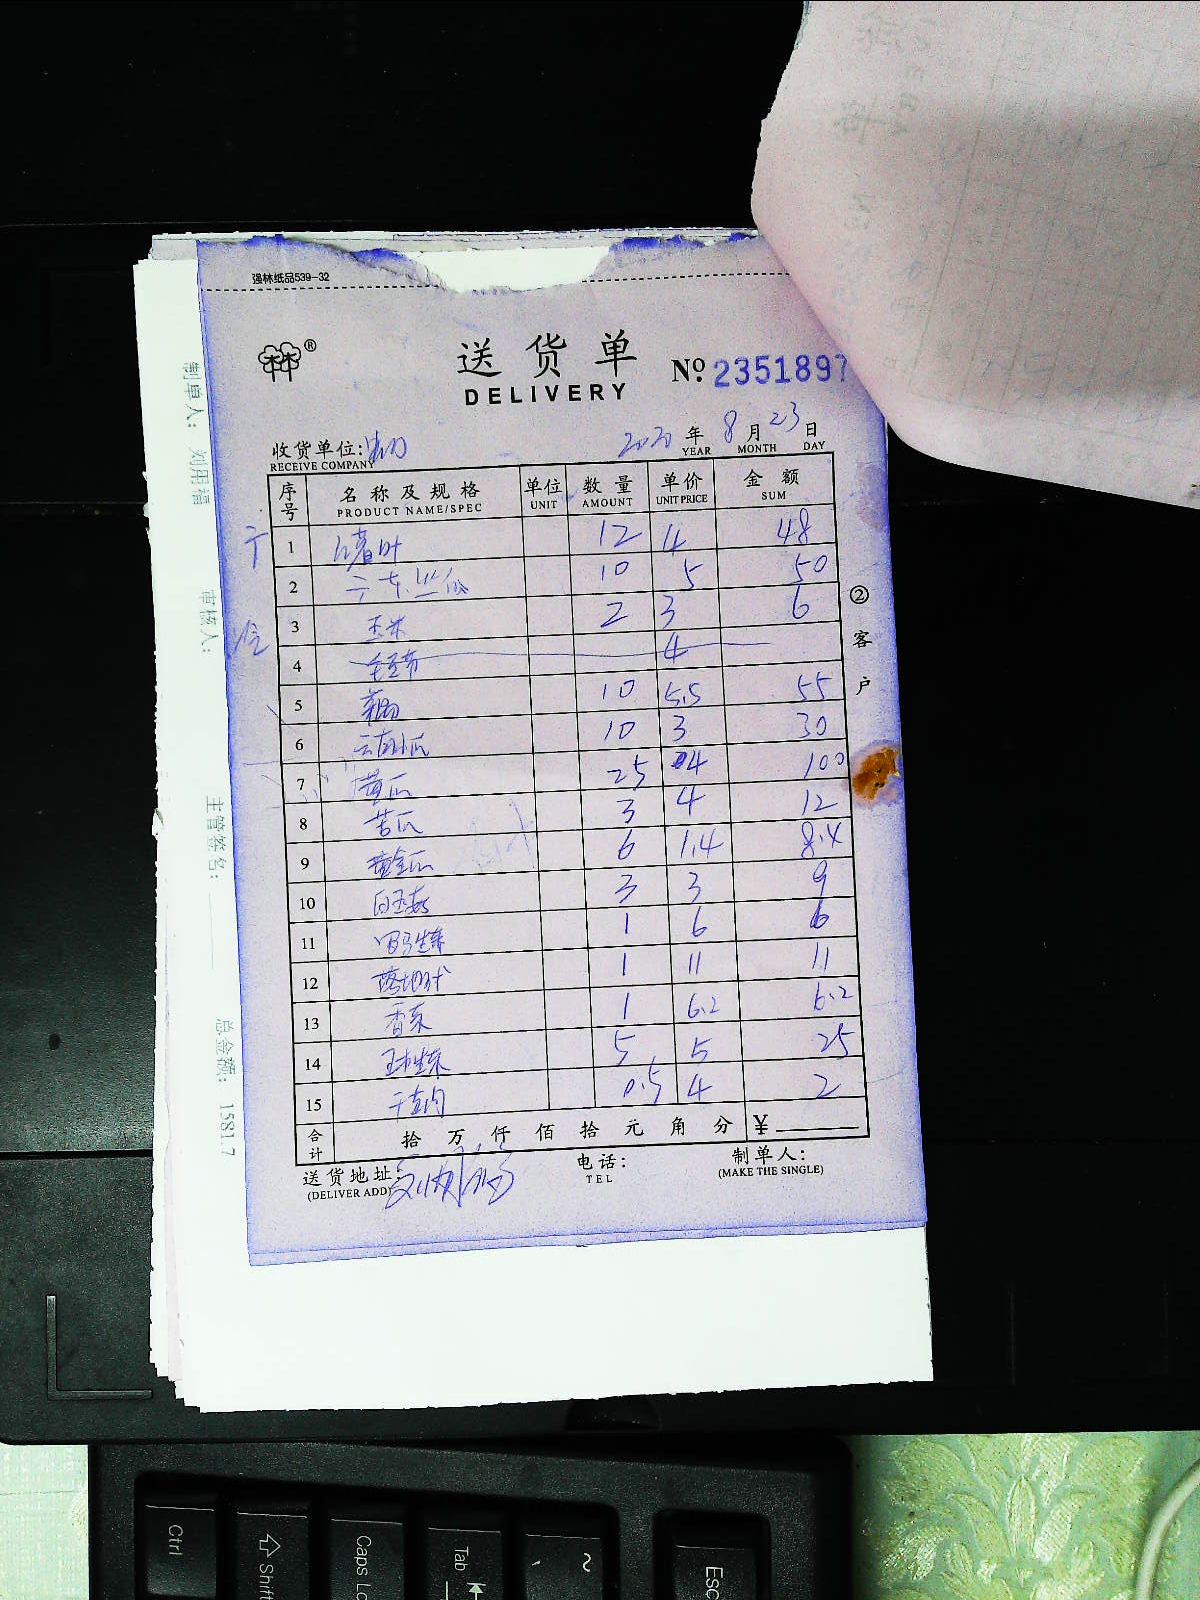 强林纸品539-32
®
送货单
DELIVERY
Nº 2351897
收货单位:
RECEIVE COMPANY
2020 年 8 月 23 日
YEAR MONTH DAY
序号 名称及规格 单位 数量 单价 金额
PRODUCT NAME/SPEC UNIT AMOUNT UNIT PRICE SUM
1 叶 12 4 48
2 广东丝瓜 10 5 50
3 玉米 2 3 6
4 4
5 10 5.5 55
6 云南小瓜 10 3 30
7 黄瓜 25 4 100
8 苦瓜 3 4 12
9 黄金瓜 6 1.4 8.4
10 白玉菇 3 3 9
11 罗马生菜 1 6 6
12 1 11 11
13 香菜 1 6.2 6.2
14 球生菜 5 5 25
15 0.5 4 2
合计 拾 万 仟 佰 拾 元 角 分 ¥
送货地址: 电话: 制单人:
(DELIVER ADD) TEL (MAKE THE SINGLE)
刘用福
② 客户
制单人: 刘用福
审核人:
主管签名:
总金额: 1581.7
Ctrl
Shift
Caps Lo
Tab
~
Esc